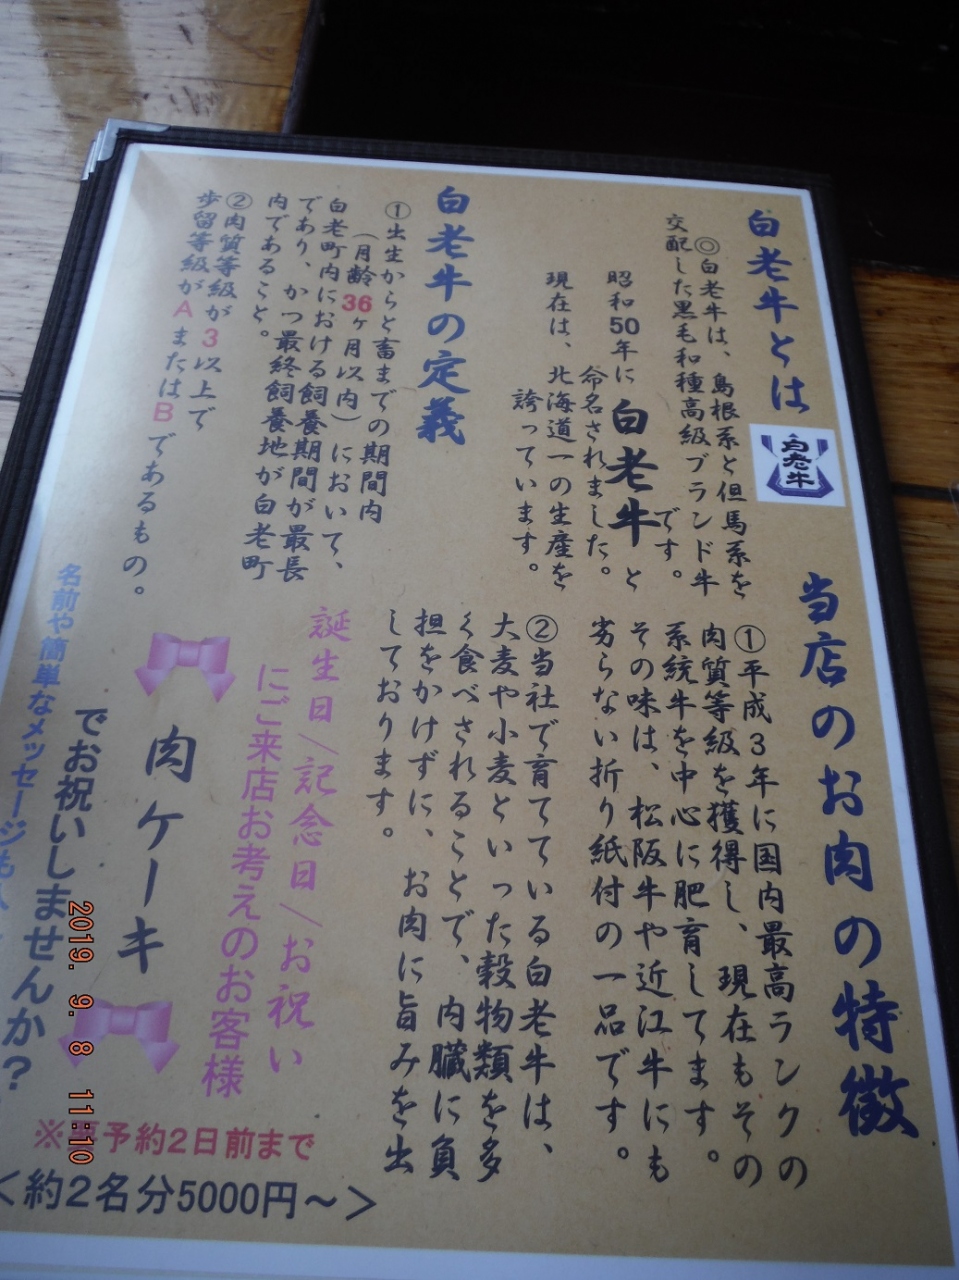 白老牛とは
白老牛
◎白老牛は、島根系と但馬系を
交配した黒毛和種高級ブランド牛
です。
昭和50年に白老牛と
命名されました。
現在は、北海道一の生産を
誇っています。
白老牛の定義
①出生からと畜までの期間内
（月齢36ヶ月以内）において、
白老町内における飼養期間が最長
であり、かつ最終飼養地が白老町
内であること。
②肉質等級が3以上で
歩留等級がAまたはBであるもの。
当店のお肉の特徴
①平成3年に国内最高ランクの
肉質等級を獲得し、現在もその
系統牛を中心に肥育してます。
その味は、松阪牛や近江牛にも
劣らない折り紙付の一品です。
②当社で育てている白老牛は、
大麦や小麦といった穀物類を多
く食べされることで、内臓に負
担をかけずに、お肉に旨みを出
しております。
誕生日/記念日/お祝い
にご来店お考えのお客様
肉ケーキ
でお祝いしませんか？
名前や簡単なメッセージも
※要予約2日前まで
＜約2名分5000円～＞
2019. 9. 8 11:10